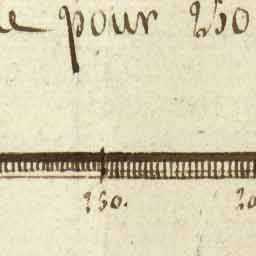 e pour 250
150.
20